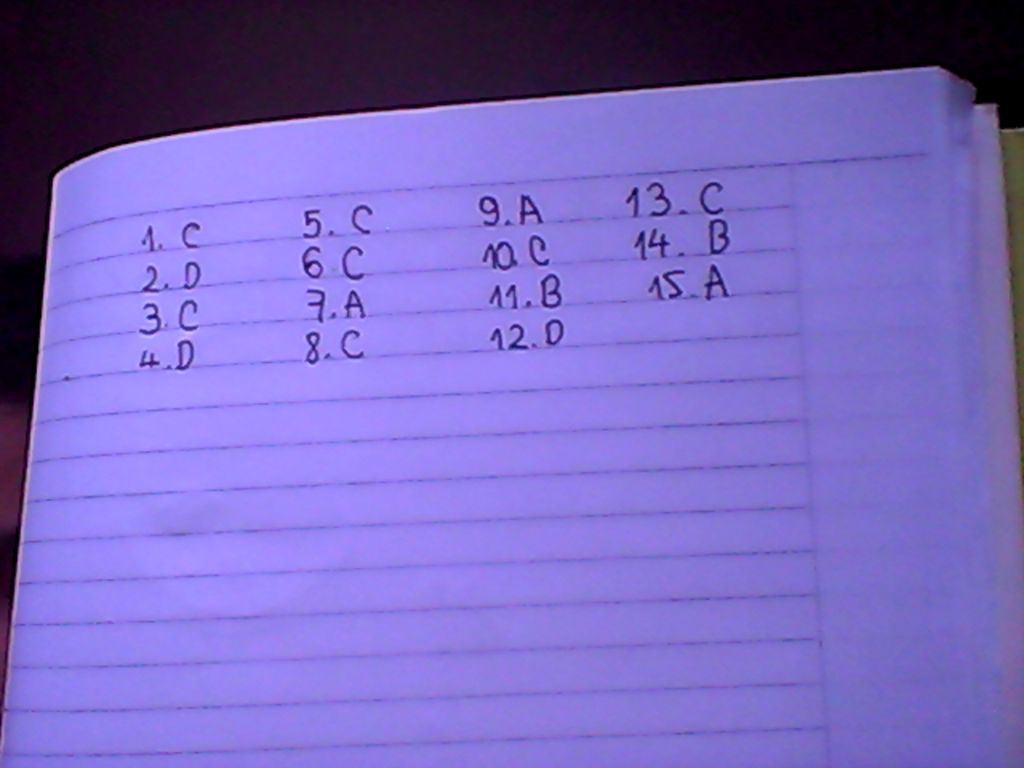 1. C 5. C 9. A 13. C
2. D 6 C 10. C 14. B
3. C 7. A 11. B 15. A
4. D 8. C 12. D